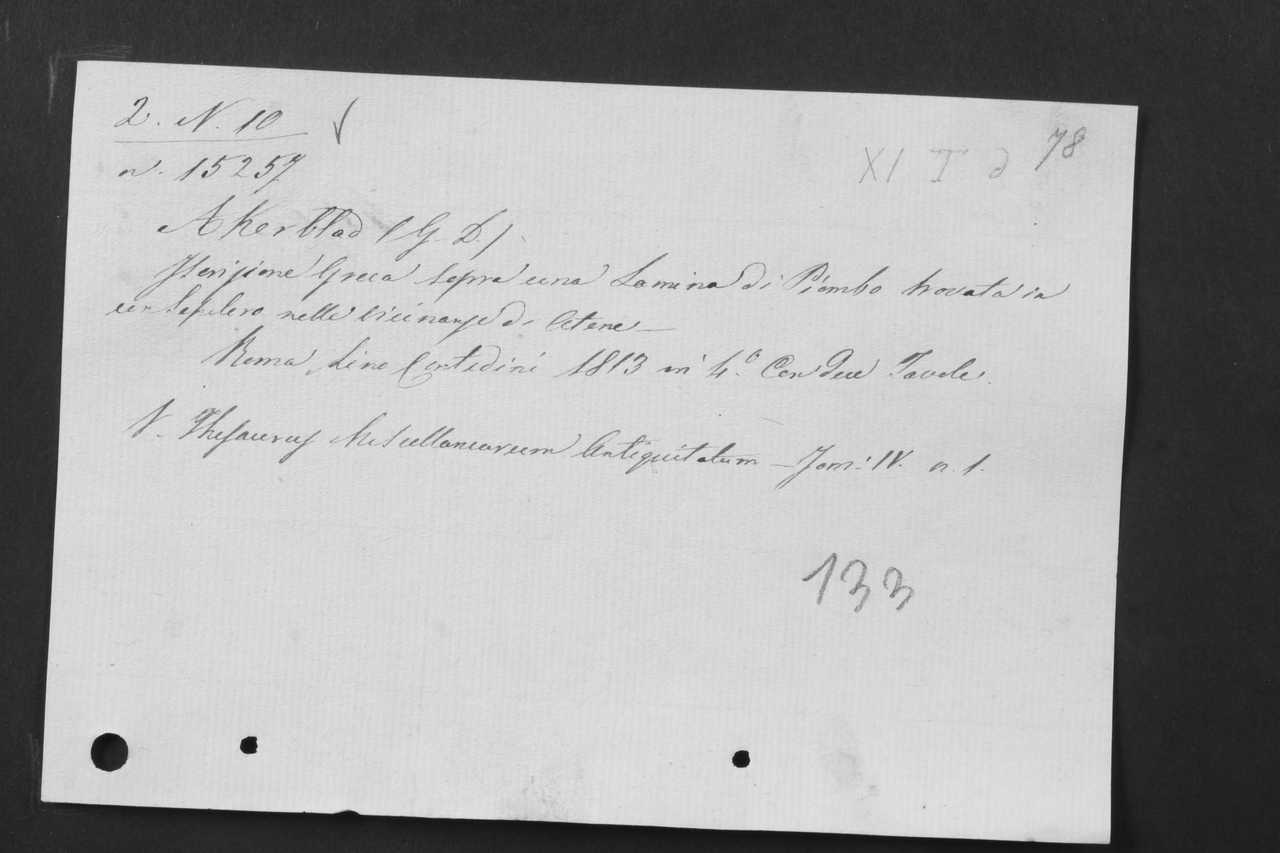 2. N. 10 ✓
XI I d 78
n. 15257
Akerblad (G. D.)
Iscrizione Greca sopra una Lamina di Piombo trovata in
un Sepolcro nelle vicinanze di Atene —
Roma, Lino Contedini 1813 in 4.o Con due Tavole.
V. Thesaurus Miscellanearum Antiquitatum — Tom: IV. n. 1.
133